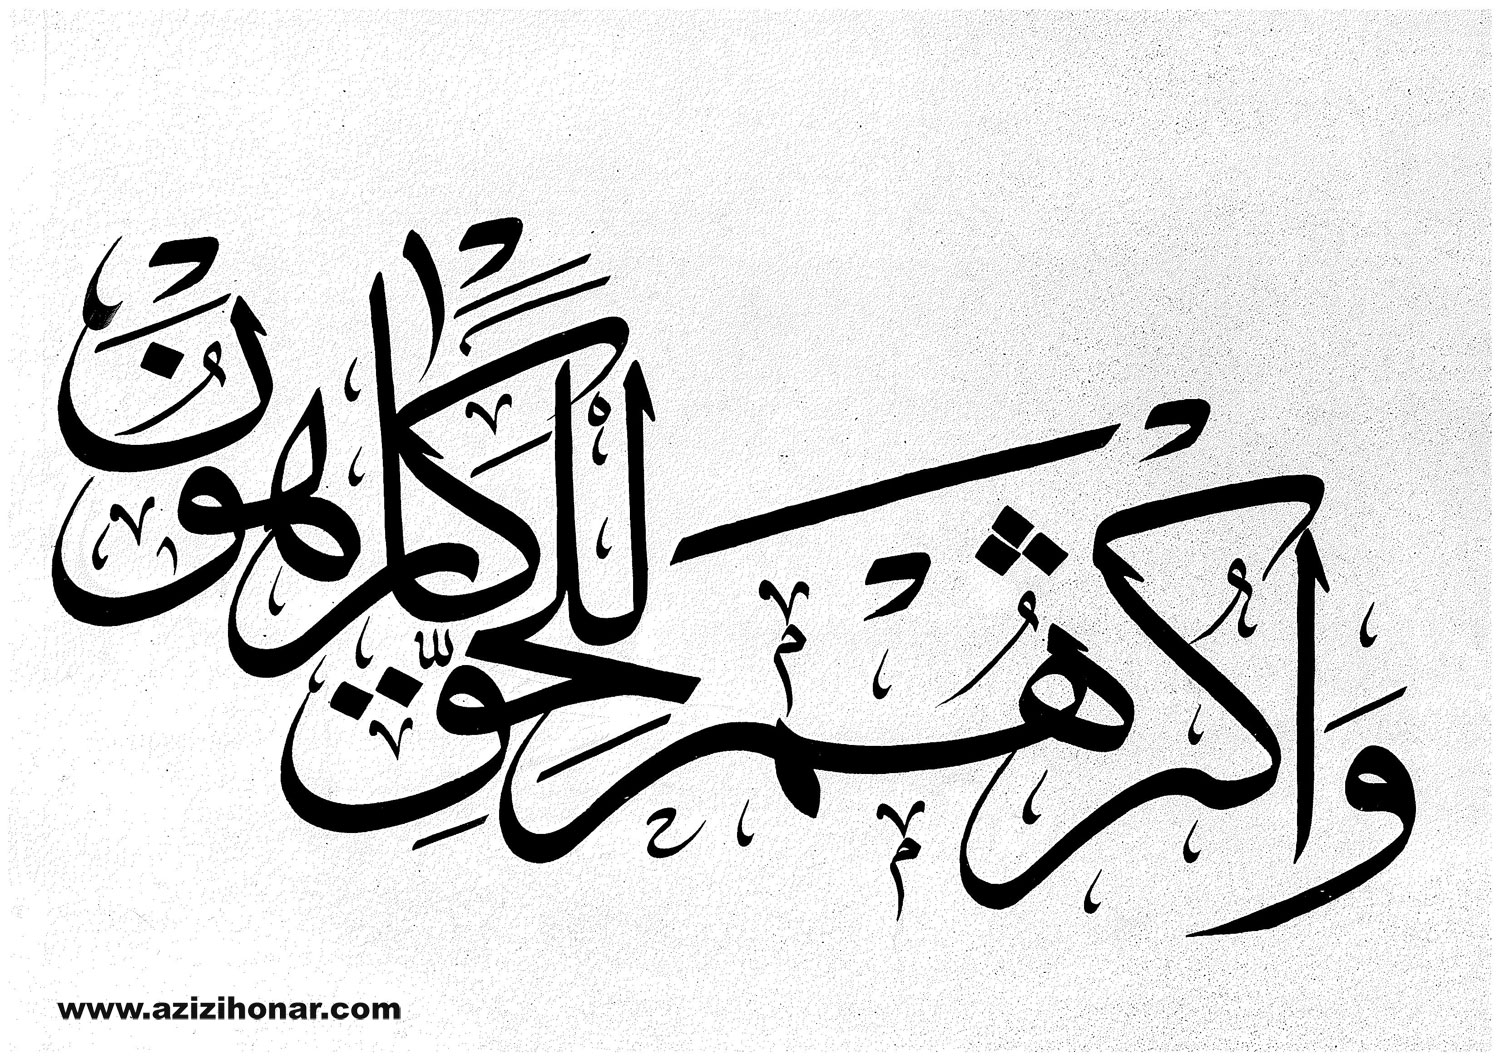 وَأَكْثَرُهُمْ لِلْحَقِّ كَارِهُونَ
www.azizihonar.com